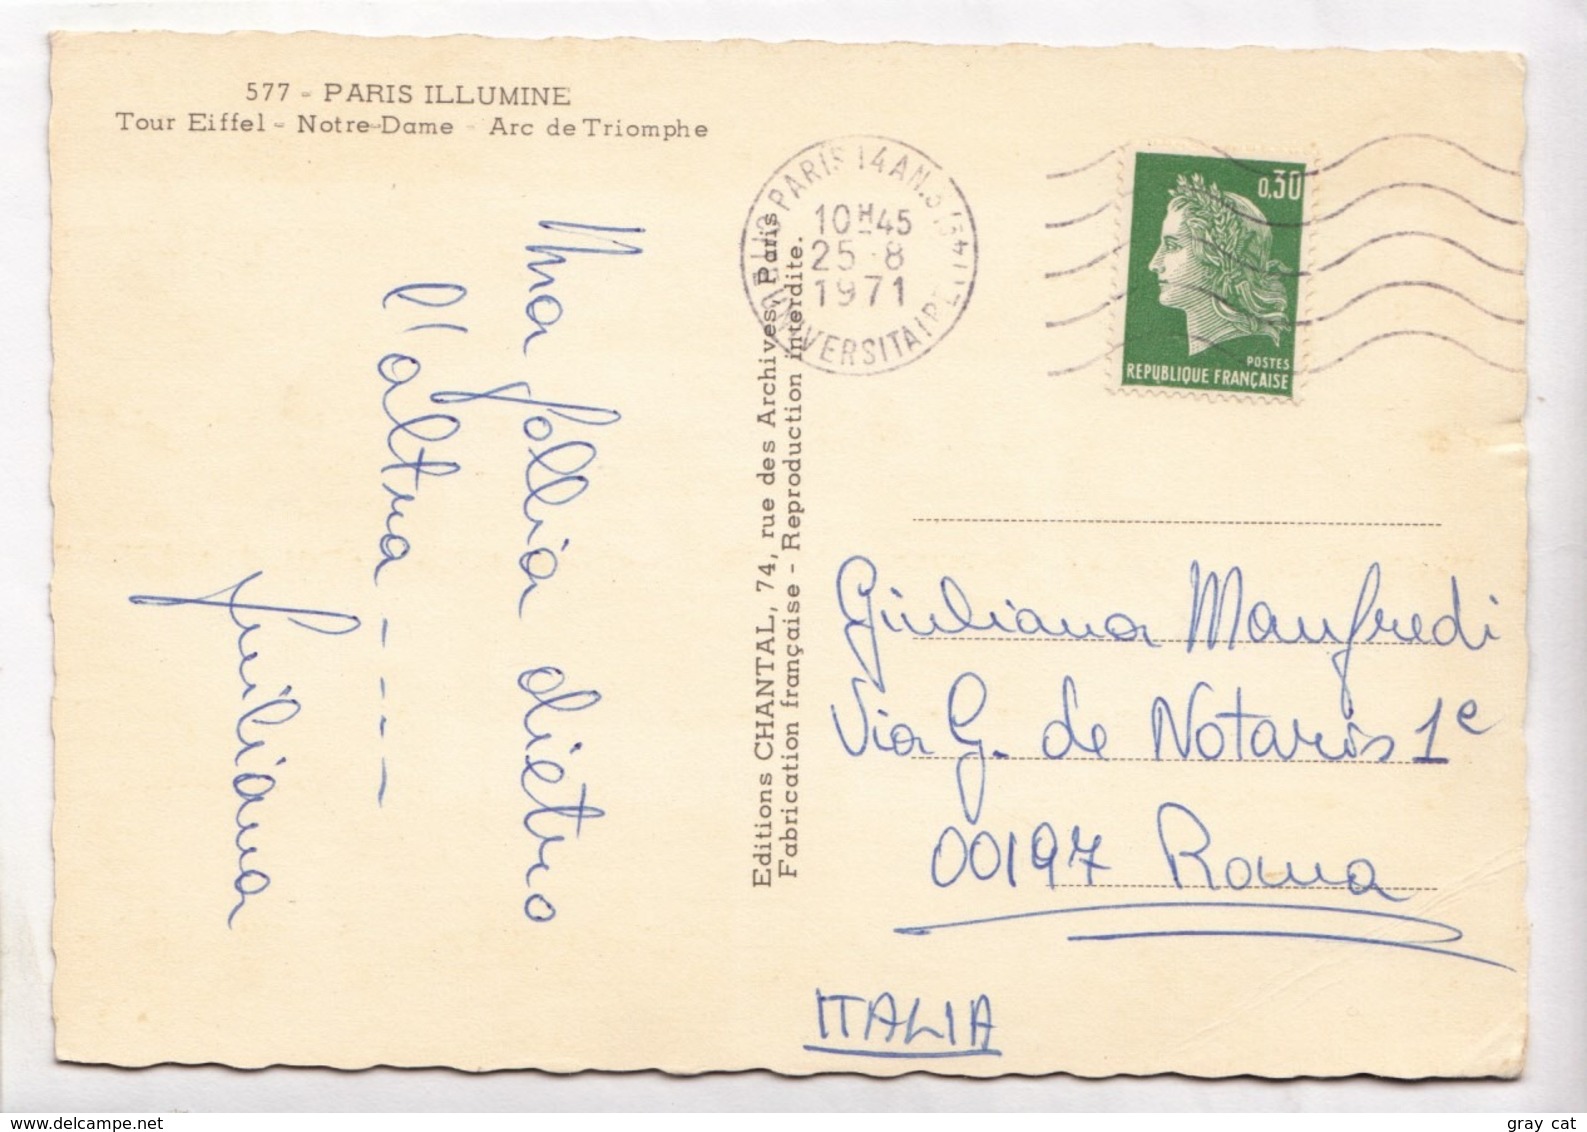 577 - PARIS ILLUMINE
Tour Eiffel - Notre-Dame - Arc de Triomphe
Una follia dietro
l'altra - - - -
Giuliana
Editions CHANTAL, 74, rue des Archives, Paris
Fabrication française - Reproduction interdite.
PARIS 14 AN.
10H45
25-8
1971
UNIVERSITAIRE
0,30
POSTES
REPUBLIQUE FRANÇAISE
Giuliana Manfredi
Via G. de Notaris 1e
00197 Roma
ITALIA
delcampe.net
gray cat